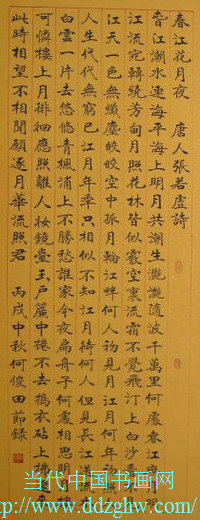 春江花月夜 唐人張若虛詩
春江潮水連海平海上明月共潮生灩灩隨波千萬里何處春江
江流宛轉繞芳甸月照花林皆似霰空裏流霜不覺飛汀上白沙看不見
江天一色無纖塵皎皎空中孤月輪江畔何人初見月江月何年初照人
人生代代無窮已江月年年只相似不知江月待何人但見長江送流
白雲一片去悠悠青楓浦上不勝愁誰家今夜扁舟子何處相思明月樓
可憐樓上月徘徊應照離人妝鏡臺玉戶簾中捲不去搗衣砧上拂還來
此時相望不相聞願逐月華流照君 丙戌中秋何俊田節錄
当代中国书画网
http://www.ddzghw.com/